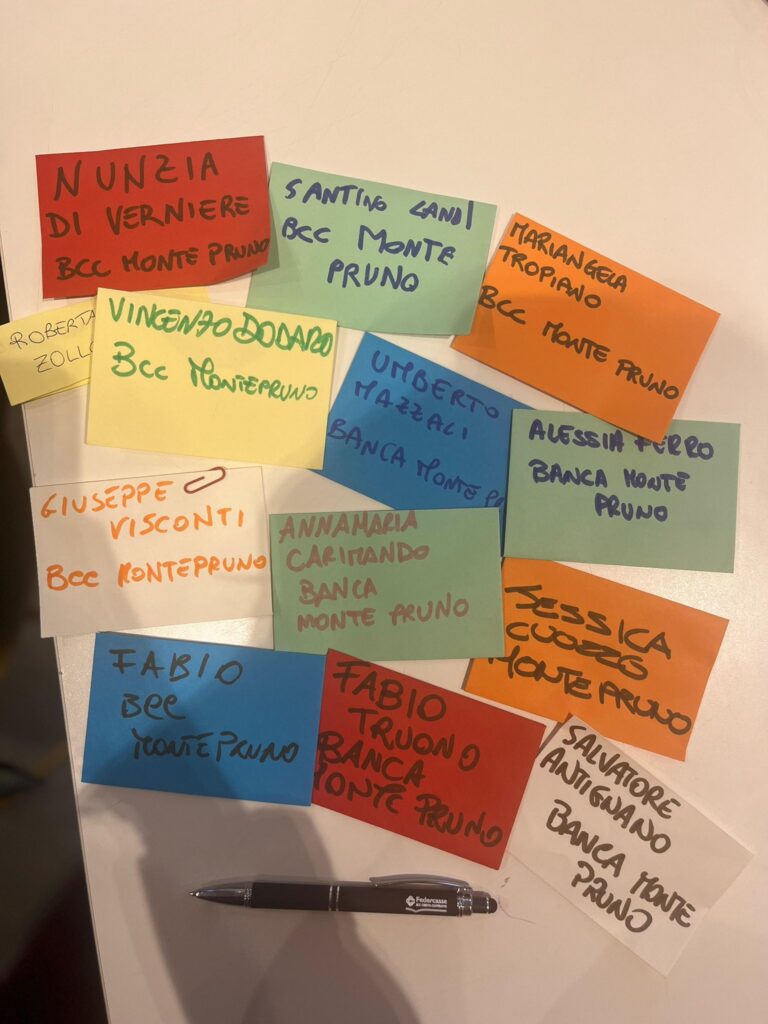 NUNZIA
DI VERNIERE
BCC MONTE PRUNO
SANTINO LANDI
BCC MONTE
PRUNO
MARIANGELA
TROPIANO
BCC MONTE PRUNO
ROBERTA
ZOLLO
VINCENZO DODARO
BCC MONTEPRUNO
UMBERTO
MAZZALI
BANCA MONTE PR
ALESSIA FERRO
BANCA MONTE
PRUNO
GIUSEPPE
VISCONTI
BCC MONTEPRUNO
ANNAMARIA
CARIMANDO
BANCA
MONTE PRUNO
JESSICA
CUOZZO
MONTE PRUNO
FABIO
BCC
MONTE PRUNO
FABIO
TRUONO
BANCA
MONTE PRUNO
SALVATORE
ANTIGNANO
BANCA MONTE
PRUNO
Federcasse